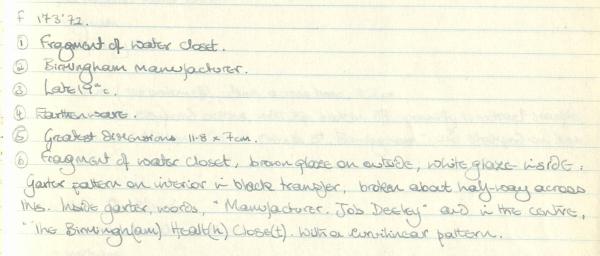 f 173'72.
① Fragment of water closet.
② Birmingham manufacturer.
③ Late 19th c.
④ Earthenware.
⑤ Greatest dimensions 11.8 x 7cm.
⑥ Fragment of water closet, brown glaze on outside, white glaze inside.
Garter pattern on interior in black transfer, broken about half-way across
this. Inside garter, words, "Manufacturer. Job Deeley" and in the centre,
"The Birmingh(am) Healt(h) Close(t). With a curvilinear pattern.